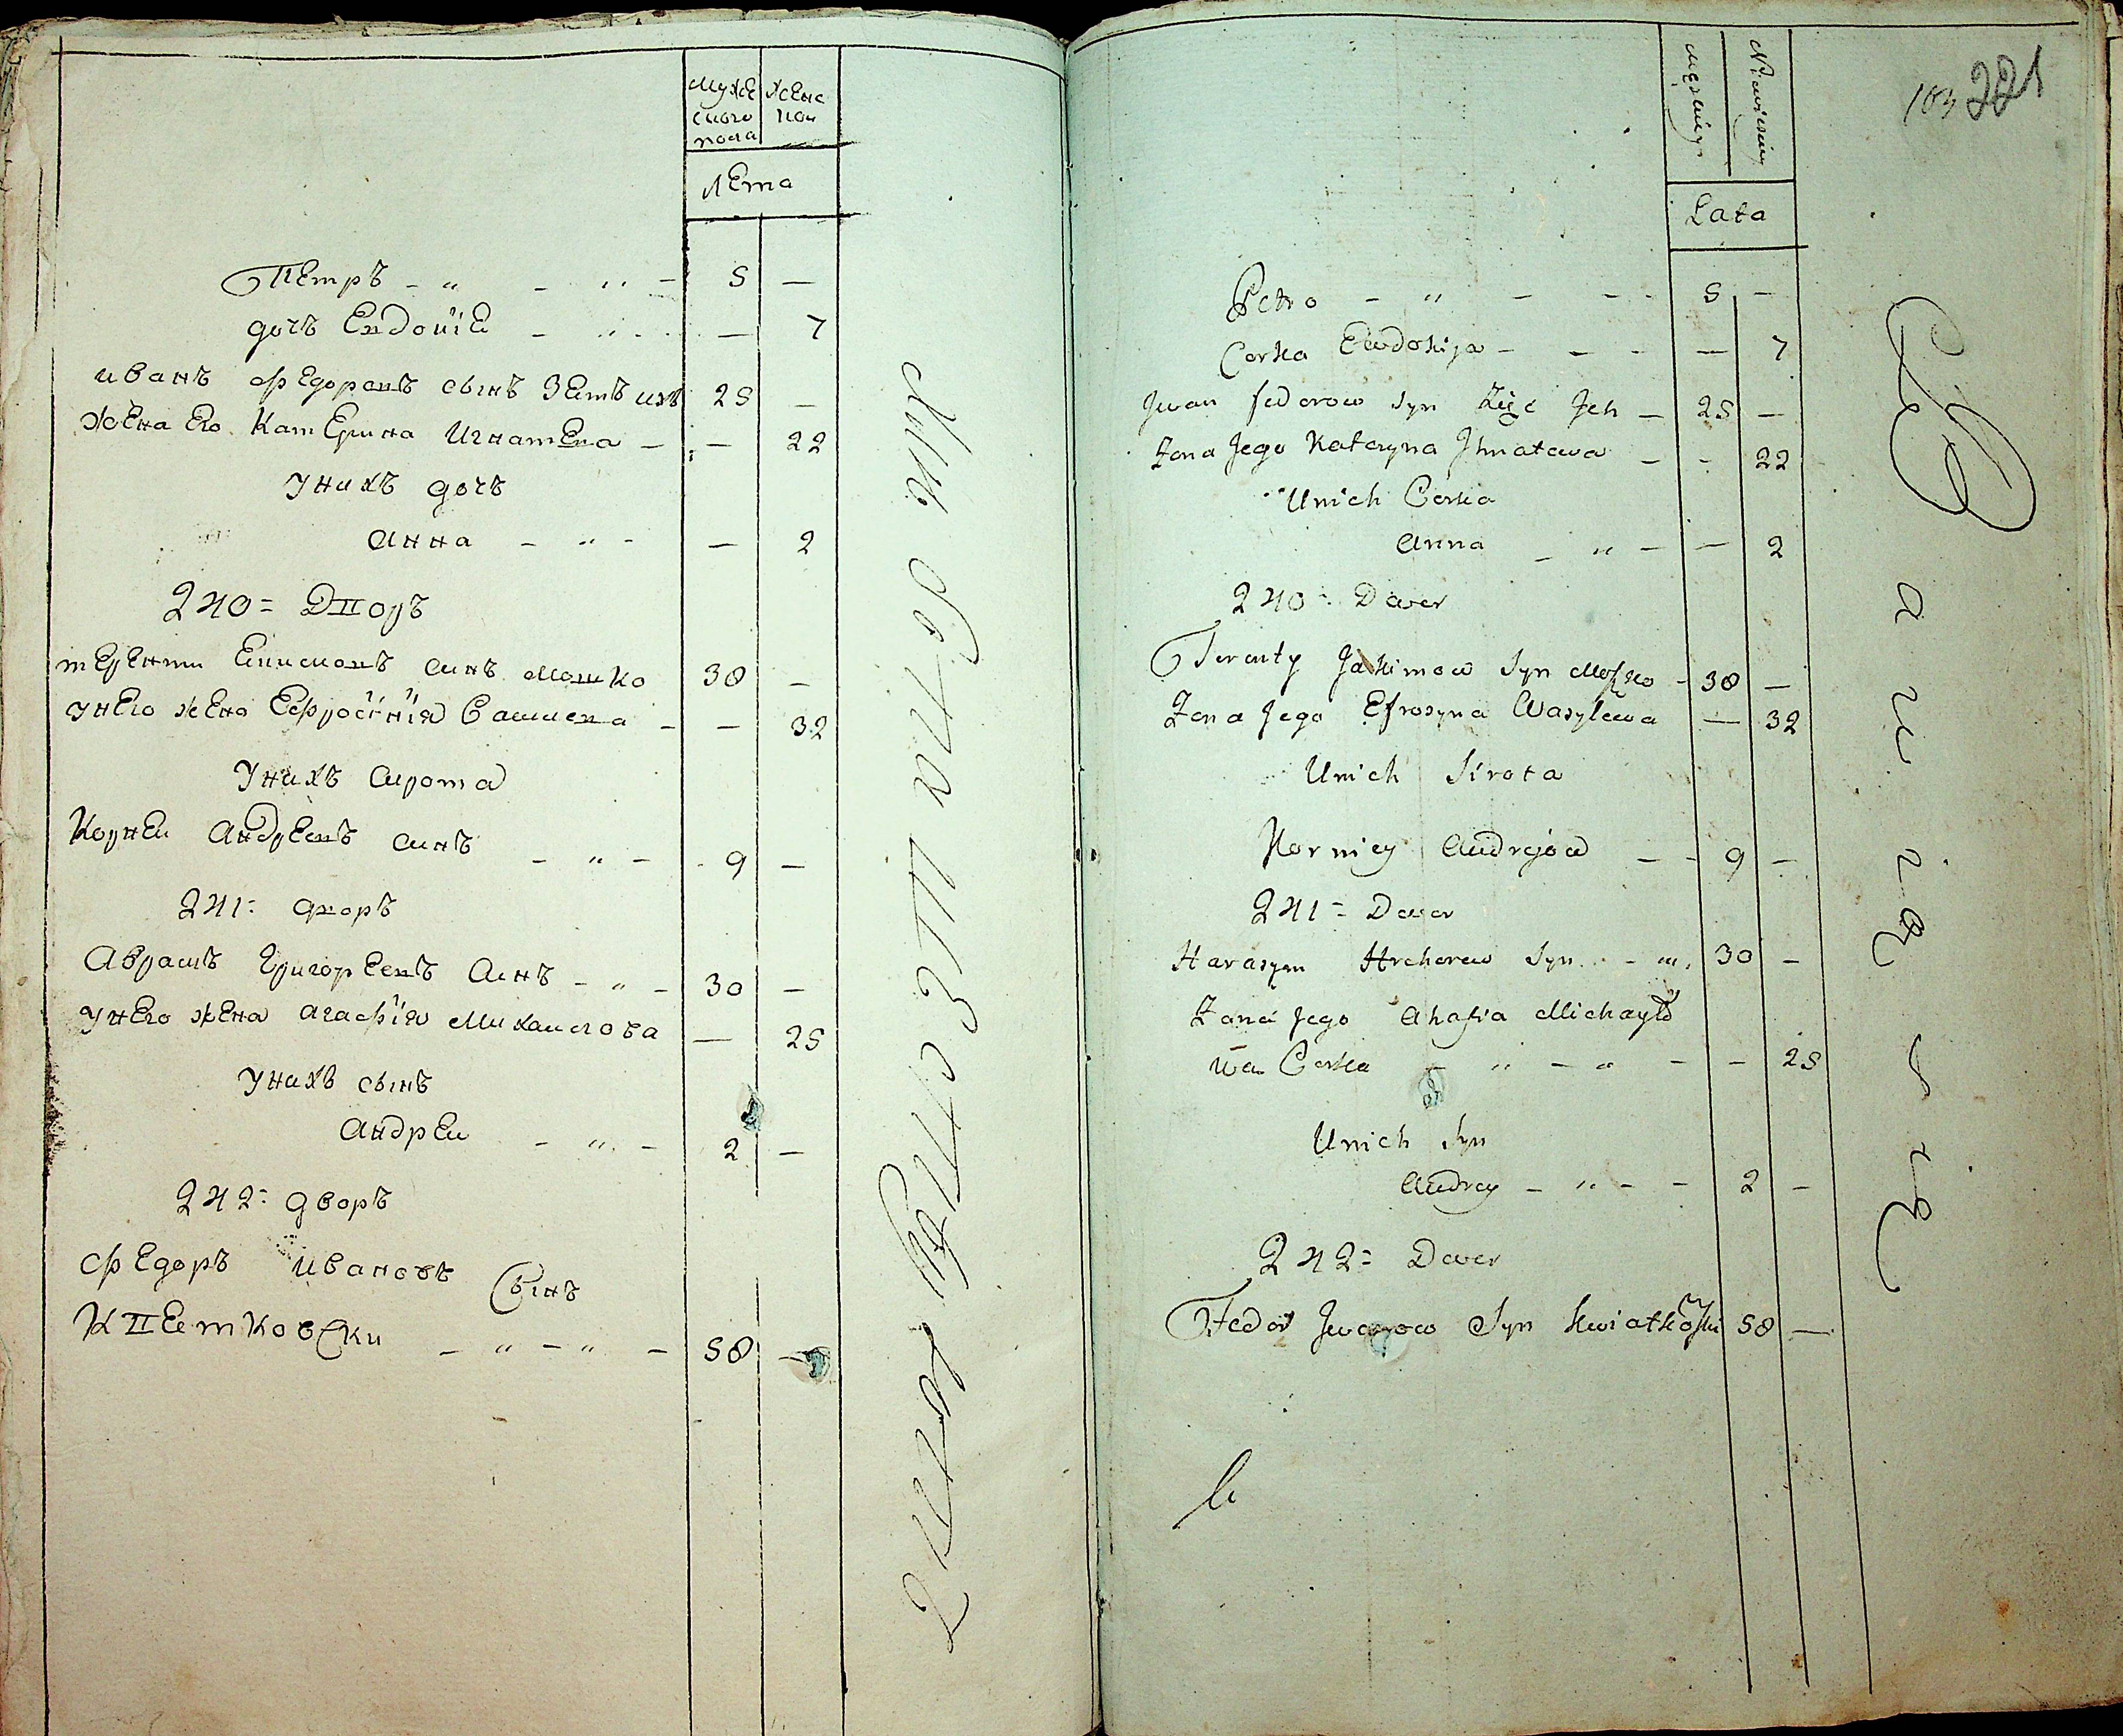 Муже
скаго
пола
Женс
кои
Лета
Петръ - " - " - 5 -
дочъ Евдокiе - " - - 7
иванъ федоровъ сынъ Зетъ ихъ 25 -
Жена Его Катерина Игнатева - - 22
Унихъ дочъ
Анна - " - - 2
240 = Дворъ
терентеи Екимовъ синъ Мошко 38 -
унего жена Ефросiнiя Василева - - 32
Унихъ сирота
Корнеи Андреевъ синъ - " - 9 -
241 = дворъ
Аврамъ Григорьевъ синъ - " - 30 -
унего жена Агафiя Михаилова - 25
Унихъ сынъ
Андреи - " - 2 -
242 = дворъ
федоръ ивановъ сынъ
Кветковски - " - " - 58 -
103 221
Męskiey
Niewieściey
Lata
Petro - " - - 5 -
Corka Ewdokija - - - - 7
Jwan fedorow syn Zięć Jch - 25 -
Zona Jego Kateryna Jhnatewa - - 22
Unich Corka
Anna - " - - 2
240 = Dwor
Terenty Jakimow Syn Moszko - 38 -
Zona Jego Efrosyna Wasylewa - 32
Unich Sirota
Korniey Andrejów - - 9 -
241 = Dwor
Harasym Hrehorew Syn - " 30 -
Zona Jego Ahafia Michayło
wa Corka - " - " - - 25
Unich Syn
Andrey - " - - 2 -
242 = Dwor
Fedor Jwanow Syn Kwiatkowski 58 -